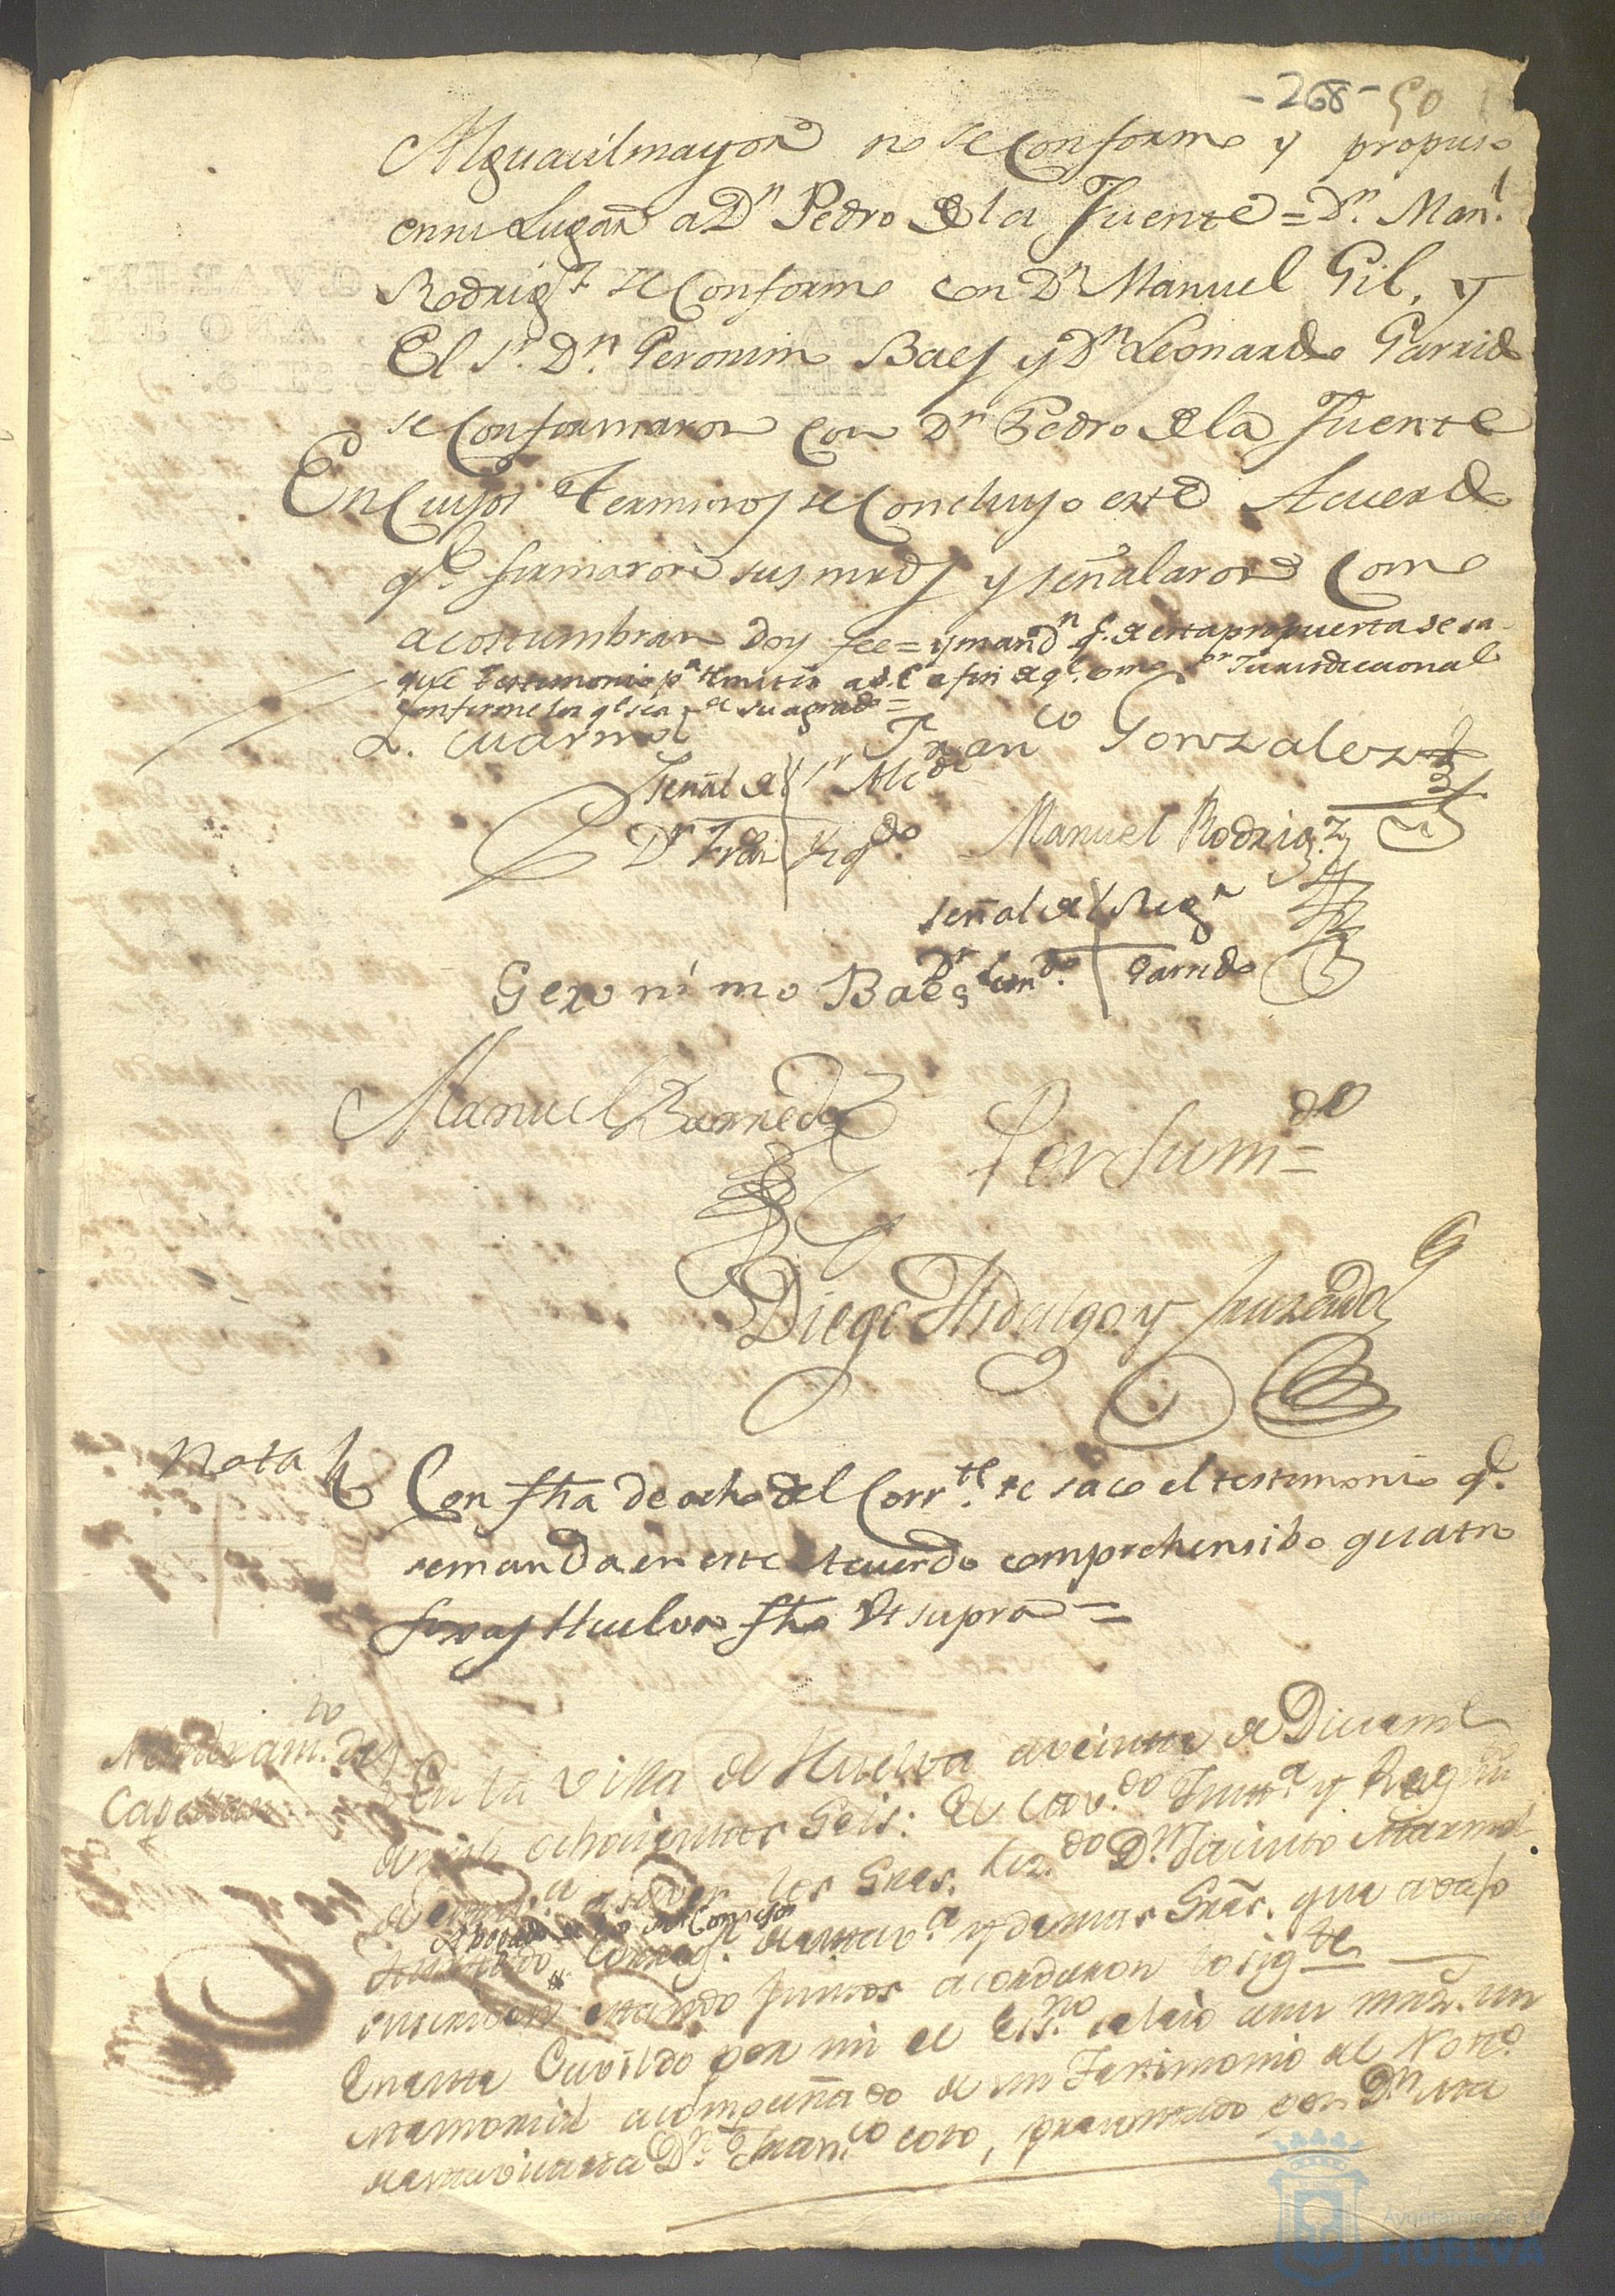 -268- 50
Alguacil mayor no se Conformo y propuso
en su Lugar a Dn Pedro de la Fuente = Dn. Manl.
Rodrigz se Conformo con Dn Manuel Gil, y
El Sr. Dn. Geronimo Baes y Dn Leonardo Garrido
se Conformaron con Dn Pedro de la Fuente
En Cuyos Terminos se Concluyo este Acuerdo
qe. firmaron sus mrds y señalaron Como
acostumbran doy fee = y mandn q. de esta propuesta se sa-
que Testimonio pa remitir a S.E. a fin de qe. como Sr Jurisdiccional
confirme los qe sean de su agrado =
L. Marmol
Franco Gonzalez
Señal del Sr Alcde
Dn Frai Figdo.
Manuel Rodrigz
señal del Regr
Dn Leondo. Garrido
Geronimo Baes
Manuel Barreda
Por su mdo =
Diego Hidalgo y
Nota
Con fha de ocho del Corrte. se saco el testimonio qe.
se manda en este Acuerdo comprehensibo quatro
foxas Huelva fha Vt supra =
Nombramto. de
Capitan
En la Villa de Huelva a veinte de Diciembre
de mil ochocientos Seis: El Cav.do Justta y Regimto
de esta va a saver los Sres. Liz.do Dn Jacinto Marmol
Abogado de los Rs Consejos
Corregr. de esta va y demas Sres. que avajo
estando juntos acordaron lo sigte
En este Cavildo por mi el Es.no se leio a sus mrds. un
memorial acompañado de un Testimonio del Noto
de esta vicaria Dn Franco coto, presentado por Dn
Ayuntamiento de
HUELVA